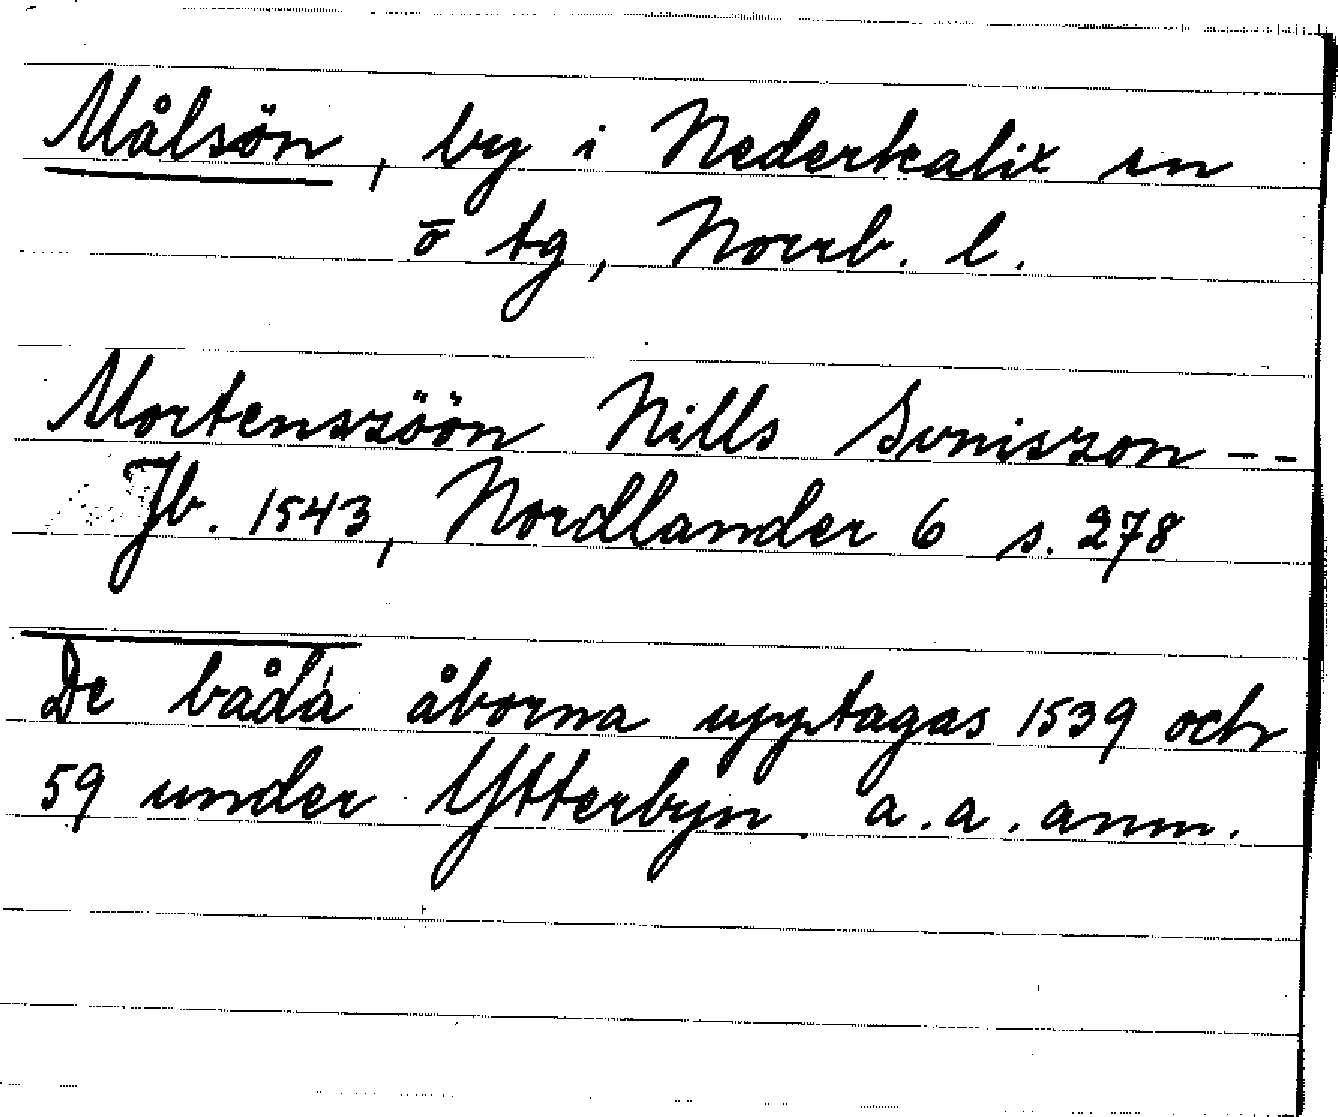 Målsön, by i Nederkalix sn
ö tg, Norrb. l.
Mortenszöön Nills Svniszon --
Jb. 1543, Nordlander 6 s. 278
De båda åborna upptagas 1539 och
59 under Ytterbyn a.a. anm.